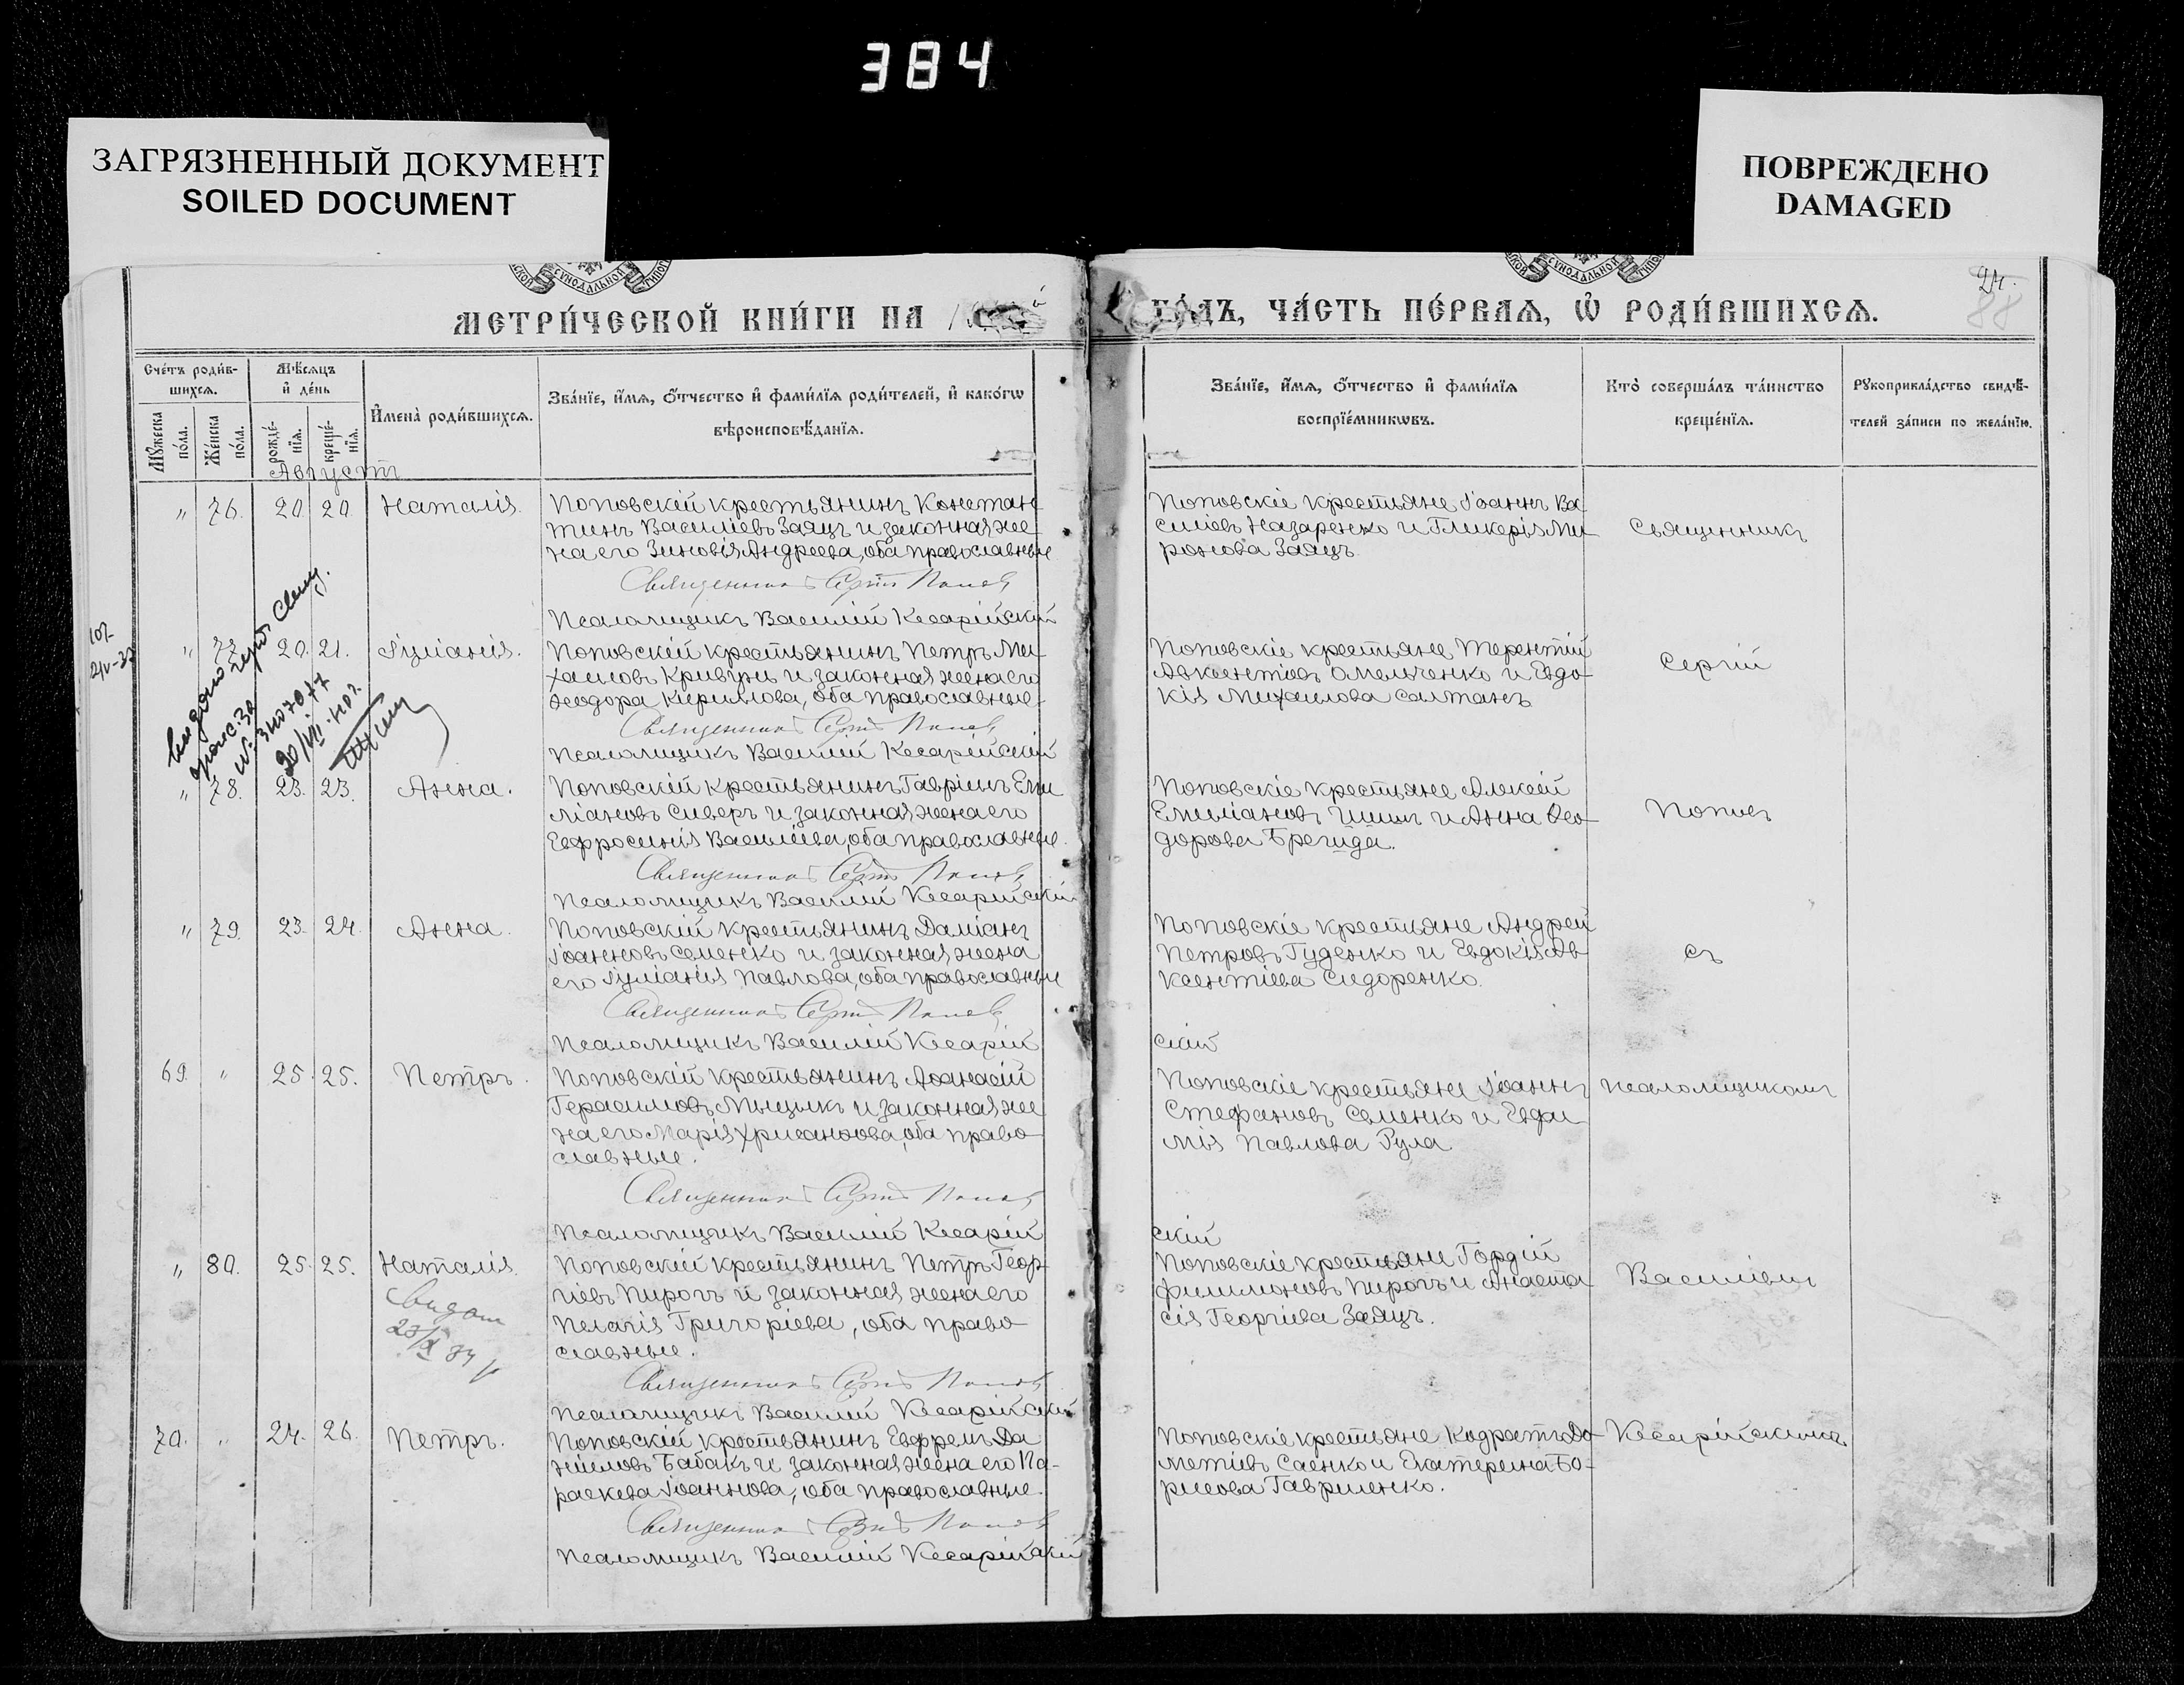 384
ЗАГРЯЗНЕННЫЙ ДОКУМЕНТ
SOILED DOCUMENT
ПОВРЕЖДЕНО
DAMAGED
СУНОДАЛЬНОЙ
СУНОДАЛЬНОЙ
24.
88
МЕТРИ́ЧЕСКОЙ КНИ́ГИ НА
ГО́ДЪ, ЧА́СТЬ ПЕ́РВАѦ, Ѽ РОДИ́ВШИХСѦ.
Сче́тъ роди́в-
шихсѧ.
Мѣ́сѧцъ
и҆ де́нь
Мꙋ́жеска по́ла.
Же́нска по́ла.
рожде́-
нїѧ.
креще́-
нїѧ.
И҆мена̀ роди́вшихсѧ.
Зва́нїе, и҆́мѧ, ѻ҆́тчество и҆ фами́лїѧ роди́телей, и҆ како́гѡ
вѣроисповѣ́данїѧ.
Зва́нїе, и҆́мѧ, ѻ҆́тчество и҆ фами́лїѧ
воспрїе́мникѡвъ.
Кто̀ соверша́лъ та́инство
креще́нїѧ.
Рꙋкоприкла́дство свидѣ́-
телей за́писи по жела́нїю.
Августъ
" 76. 20. 20. Наталія. Поповскій крестьянинъ Констан-
тинъ Василіевъ Заяцъ и законная же-
на его Зиновія Андреева, оба православные
Священникъ Сергій Поповъ
Псаломщикъ Василій Кесарійскій
Поповскіе крестьяне Іоаннъ Ва-
силіевъ Назаренко и Гликерія Ми-
ронова Заяцъ.
Священникъ
" 77. 20. 21. Іуліанія. Поповскій крестьянинъ Петръ Ми-
хаиловъ Кривунъ и законная жена его
Ѳеодора Кириллова, оба православные.
Священникъ Сергій Поповъ
Псаломщикъ Василій Кесарійскій
Поповскіе крестьяне Терентій
Авксентіевъ Омельченко и Евдо-
кія Михаилова Салтанъ
Сергій
" 78. 23. 23. Анна. Поповскій крестьянинъ Гавріилъ Еми-
ліановъ Сиверъ и законная жена его
Евфросинія Василіева, оба православные.
Священникъ Сергій Поповъ
Псаломщикъ Василій Кесарійскій
Поповскіе крестьяне Алексій
Емиліановъ и Анна Ѳео-
дорова Брегида.
Поповъ
" 79. 23. 24. Анна. Поповскій крестьянинъ Даміанъ
Іоанновъ Семенко и законная жена
его Іуліанія Павлова, оба православные
Священникъ Сергій Поповъ
Псаломщикъ Василій Кесарій
скій
Поповскіе крестьяне Андрей
Петровъ Гуденко и Евдокія Ав-
ксентіева Сидоренко.
съ
69. " 25. 25. Петръ. Поповскій крестьянинъ Аѳанасій
Герасимовъ Мыцыкъ и законная же-
на его Марія Хрисанѳова, оба право-
славные.
Священникъ Сергій Поповъ
Псаломщикъ Василій Кесарій
скій
Поповскіе крестьяне Іоаннъ
Стефановъ Семенко и Евфи-
мія Павлова Рула
псаломщикомъ
" 80. 25. 25. Наталія. Поповскій крестьянинъ Петръ Геор-
гіевъ Пирогъ и законная жена его
Пелагія Григоріева, оба право-
славные.
Священникъ Сергій Поповъ
Псаломщикъ Василій Кесарійскій
Поповскіе крестьяне Гордій
Филимоновъ Пирогъ и Анаста-
сія Георгіева Заяцъ.
Василіемъ
70. " 24. 26. Петръ. Поповскій крестьянинъ Евфремъ Да-
ніиловъ Бабакъ и законная жена его Па-
раскева Іоаннова, оба православные.
Священникъ Сергій Поповъ
Псаломщикъ Василій Кесарійскій
Поповскіе крестьяне Кодратъ До-
метіевъ Саенко и Екатерина Бо-
рисова Гавриленко.
Кесарійскимъ